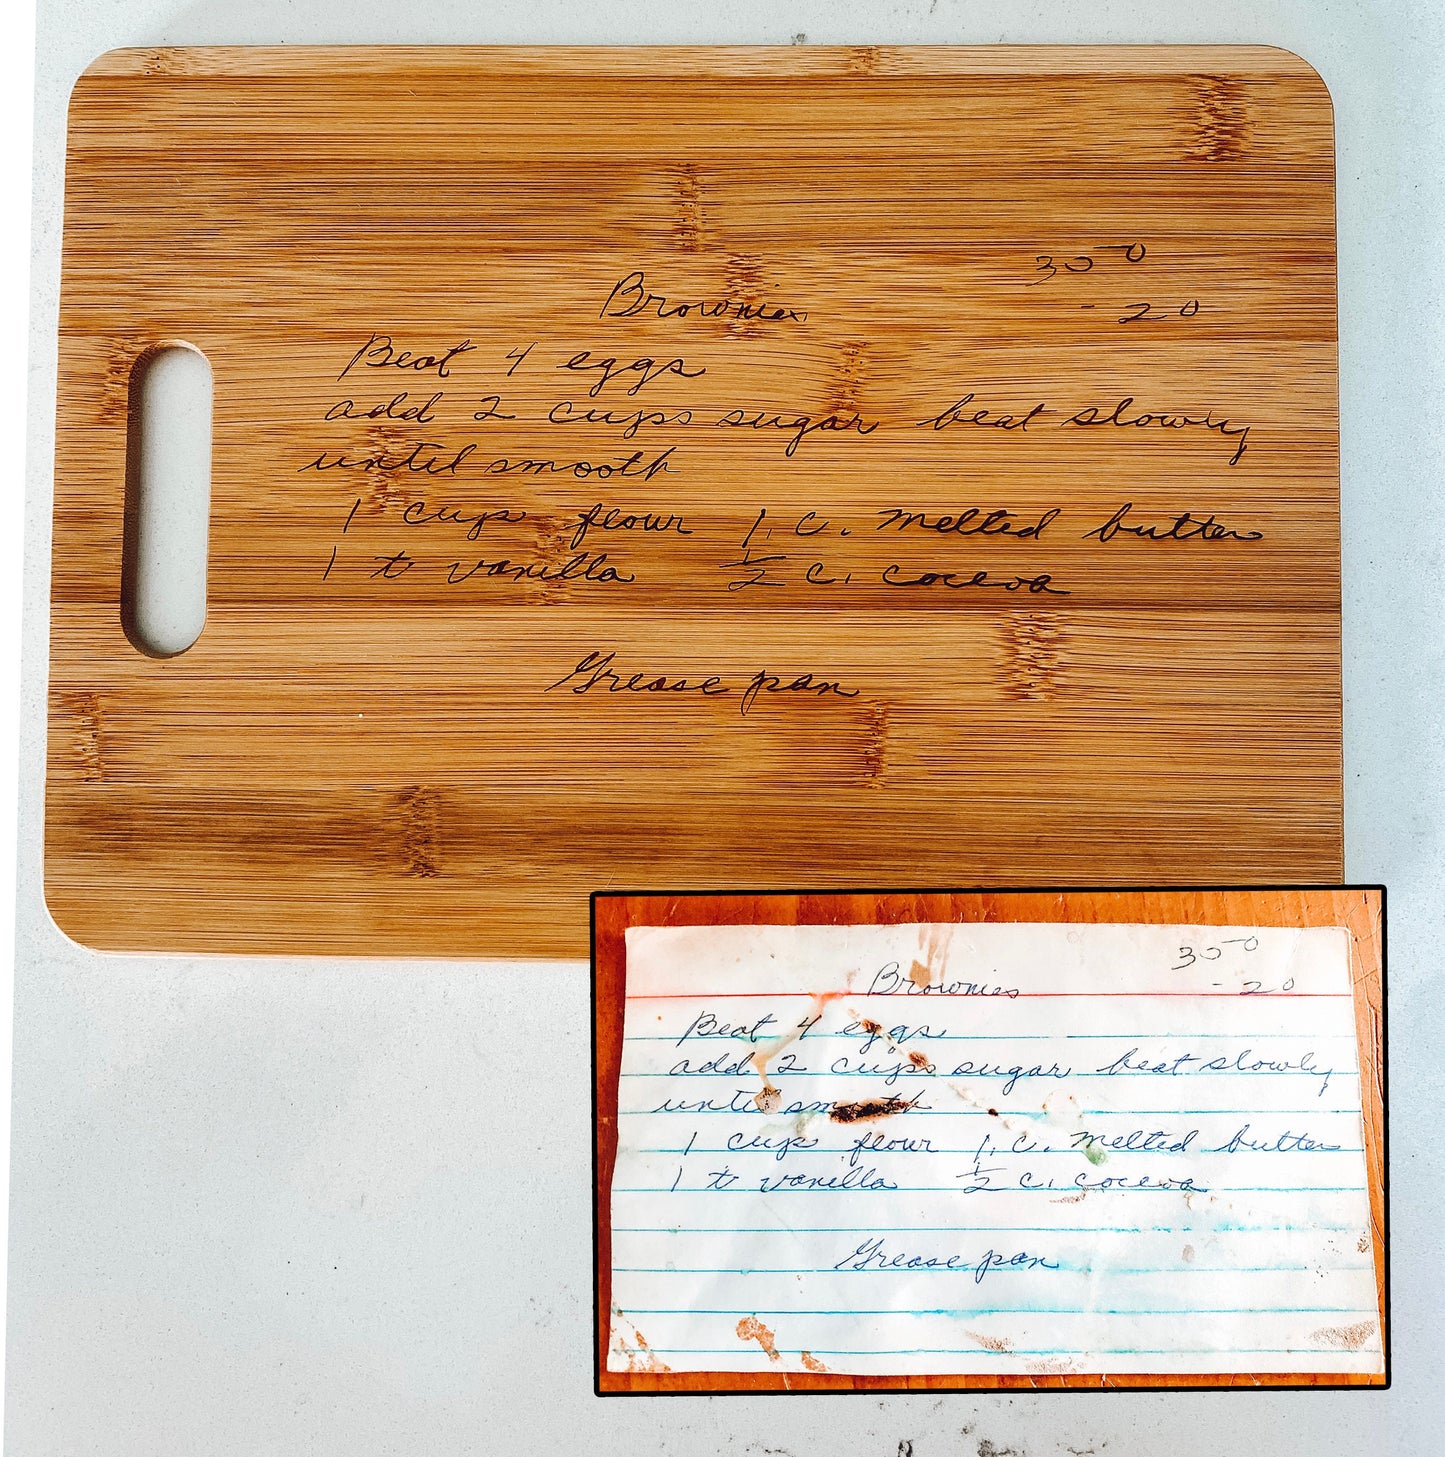 350
Brownies - 20
Beat 4 eggs
add 2 cups sugar beat slowly
until smooth
1 cup flour 1 c. melted butter
1 t vanilla ½ c. cocoa
Grease pan
350
Brownies - 20
Beat 4 eggs
add 2 cups sugar beat slowly
until smooth
1 cup flour 1 c. melted butter
1 t vanilla ½ c. cocoa
Grease pan